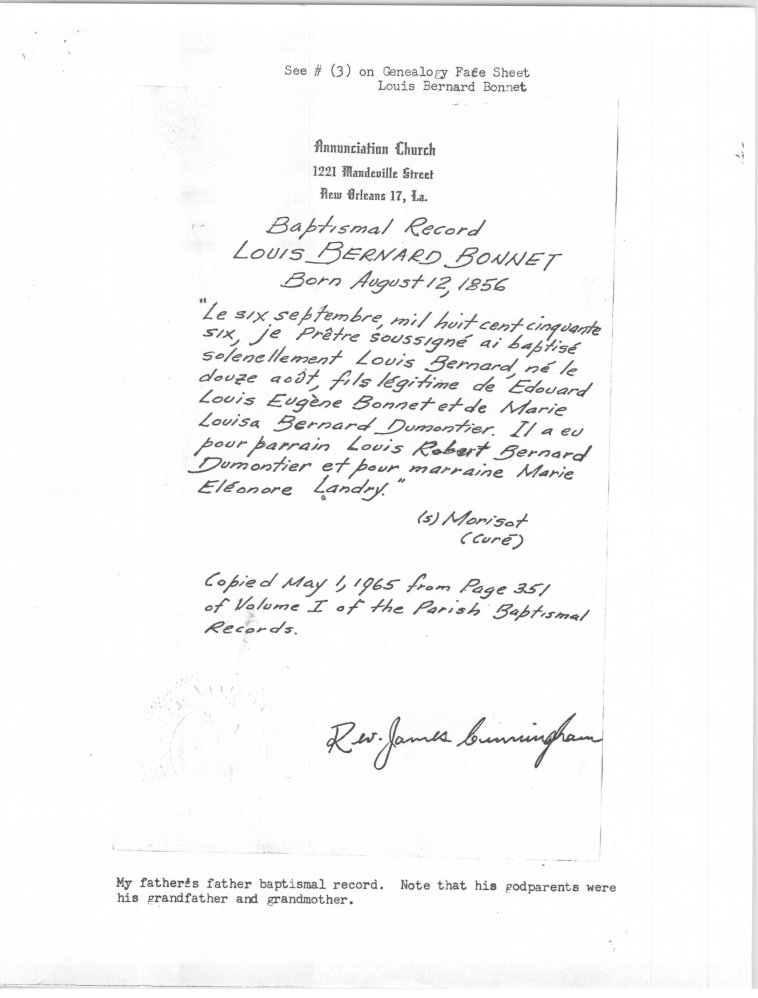 See # (3) on Genealogy Face Sheet
Louis Bernard Bonnet
Annunciation Church
1221 Mandeville Street
New Orleans 17, La.
Baptismal Record
LOUIS BERNARD BONNET
Born August 12, 1856
"Le six septembre, mil huit cent cinquante
six, je Prêtre soussigné ai baptisé
solenellement Louis Bernard, né le
douze août, fils légitime de Edouard
Louis Eugène Bonnet et de Marie
Louisa Bernard Dumontier. Il a eu
pour parrain Louis Robert Bernard
Dumontier et pour marraine Marie
Eléonore Landry."
(s) Morisot
(Curé)
Copied May 1, 1965 from Page 351
of Volume I of the Parish Baptismal
Records.
Rev. James Cunningham
My father's father baptismal record. Note that his godparents were
his grandfather and grandmother.